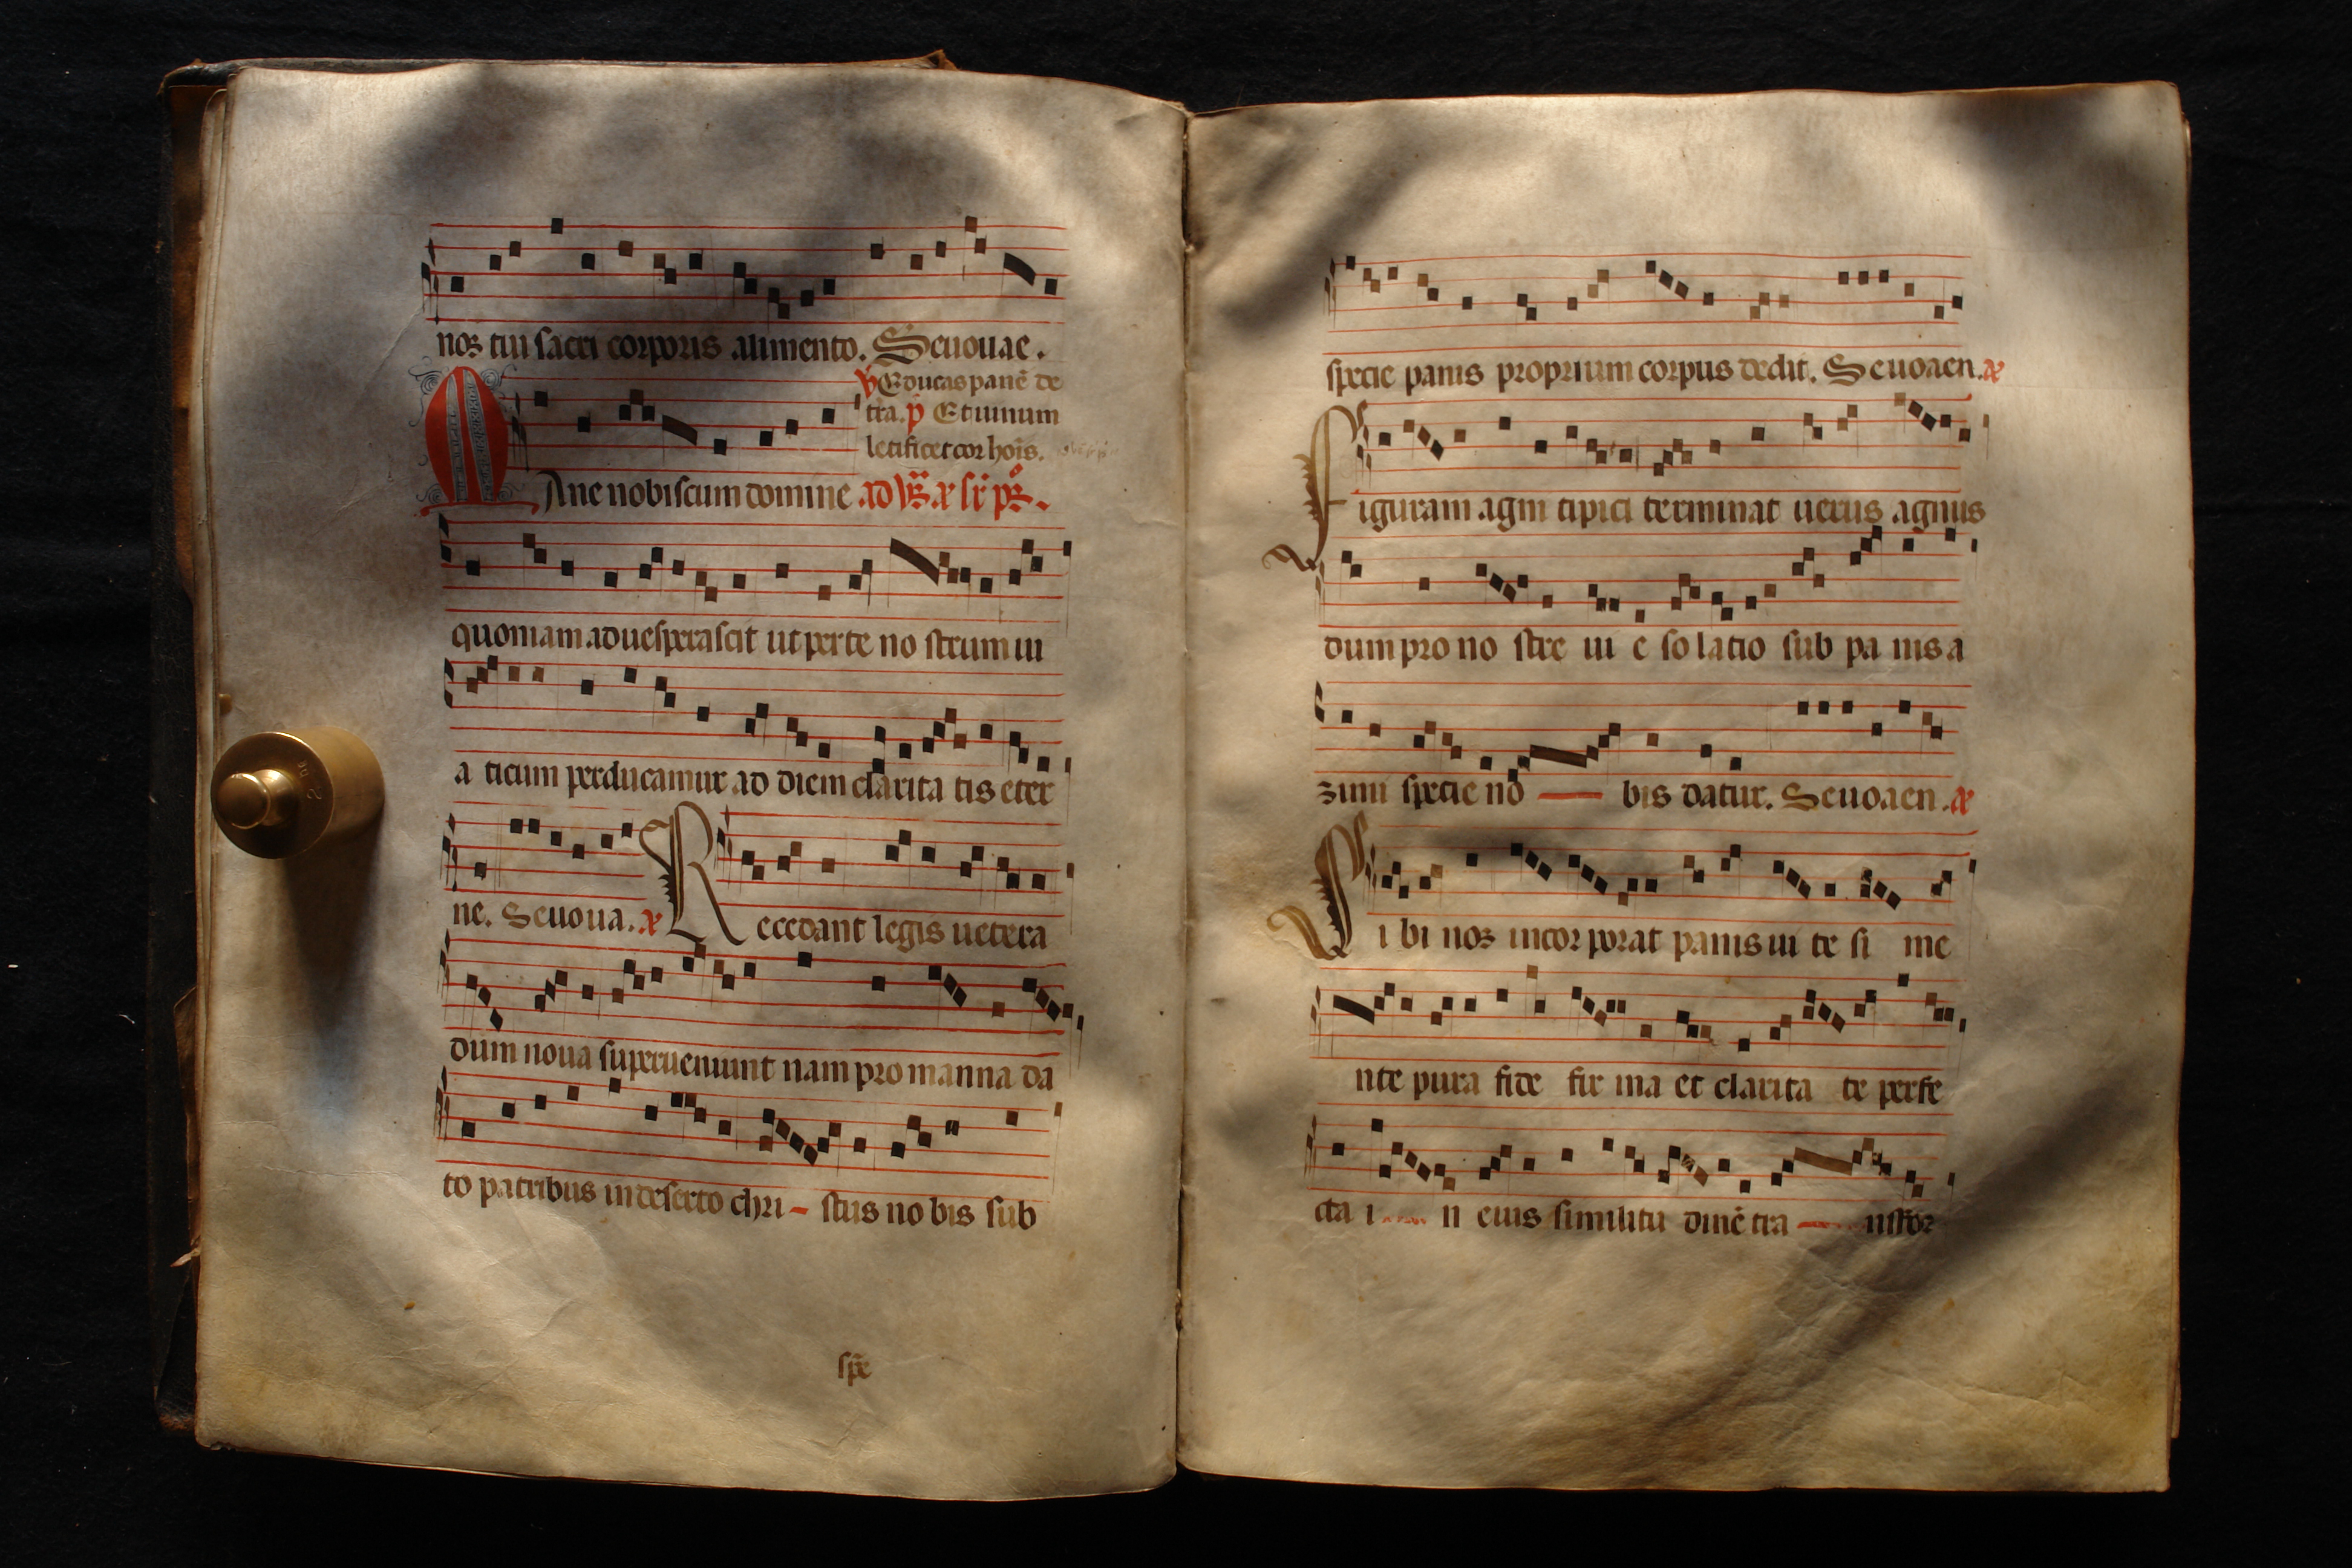 noꝛ tui ſacri corporis alimento. Seuouae.
℣ Educas panē de
tra. ꝑ Et uinum
letificet cor hoīs.
MAne nobiſcum domine ad
quoniam aduesperaſcit ut per te no ſtrum ui
a ticum perducamur ad diem clarita tis eter
ne. Seuoua. Recedant legis uetera
dum noua superueniunt nam pro manna da
to patribus in deserto chri - ſtus no bis ſub
ſpē
ſpecie panis proprium corpus dedit. Seuoaen.
Figuram agni tipici terminat uerus agnus
dum pro no ſtre ui e ſo latio ſub pa nis a
zimi ſpecie no bis datur. Seuoaen.
Sibi nos incor porat panis ui te ſi me
nte pura fide fir ma et clarita te perfe
cta i n eius ſimilitu dinē tra nſfoꝛ